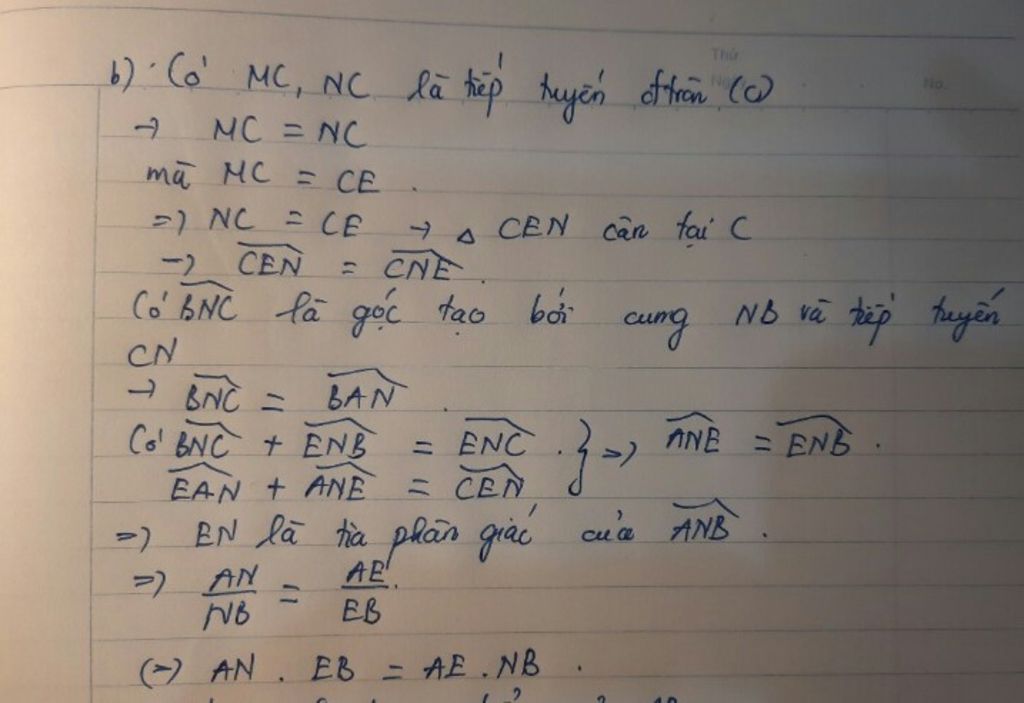 Thứ
No.
b) Có MC, NC là tiếp tuyến đtròn (O)
→ MC = NC
mà MC = CE .
=) NC = CE → △ CEN cân tại C
→ CEN = CNE .
Có BNC là góc tạo bởi cung NB và tiếp tuyến
CN
→ BNC = BAN .
Có BNC + ENB = ENC . } =) ANE = ENB .
EAN + ANE = CEN
=) EN là tia phân giác của ANB .
=) AN/NB = AE/EB .
(=) AN . EB = AE . NB .